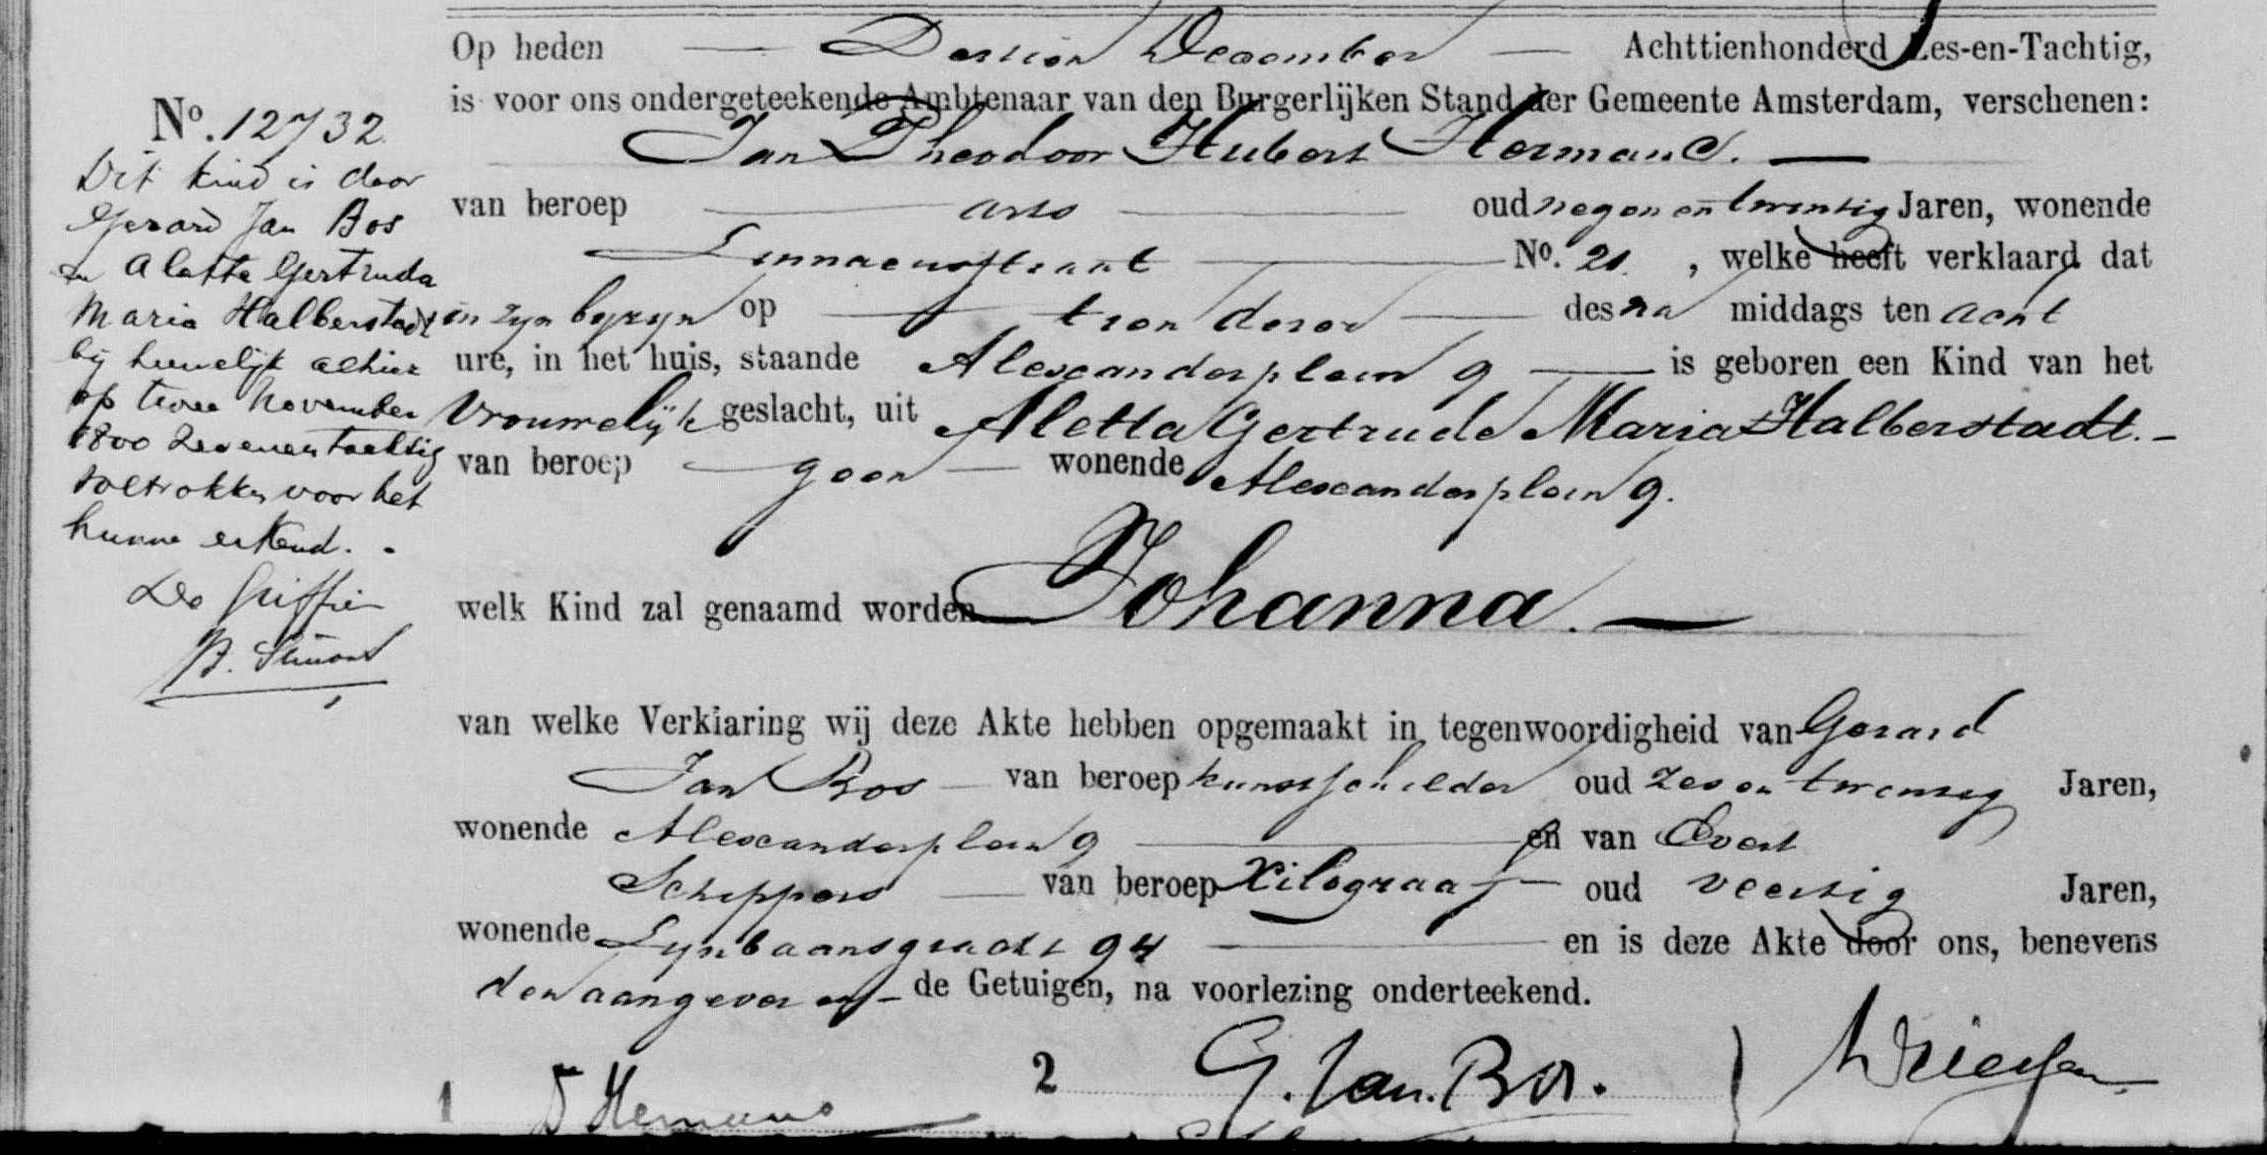 Op heden Dertien December Achttienhonderd Zes-en-Tachtig,
is voor ons ondergeteekende Ambtenaar van den Burgerlijken Stand der Gemeente Amsterdam, verschenen:
Jan Theodoor Hubert Hermans.
van beroep arts oud negen en twintig Jaren, wonende
Linnaeusstraat No. 21, welke heeft verklaard dat
in zijn bijzijn op tien dezer des na middags ten acht
ure, in het huis, staande Alexanderplein 9 is geboren een Kind van het
Vrouwelijk geslacht, uit Aletta Gertrude Maria Halberstadt.
van beroep geen wonende Alexanderplein 9.
welk Kind zal genaamd worden Johanna.
van welke Verklaring wij deze Akte hebben opgemaakt in tegenwoordigheid van Gerard
Jan Bos van beroep kunstschilder oud zes en twintig Jaren,
wonende Alexanderplein 9 en van Evert
Schippers van beroep Xilograaf oud veertig Jaren,
wonende Lijnbaansgracht 94 en is deze Akte door ons, benevens
den aangever en de Getuigen, na voorlezing onderteekend.
1 Hermans 2 G. Jan. Bos.
No. 12732
Dit kind is door
Gerard Jan Bos
en Aletta Gertruda
Maria Halberstadt
bij huwelijk alhier
op twee November
1800 zevenentachtig
voltrokken voor het
hunne erkend.
De Griffier
B. Simons